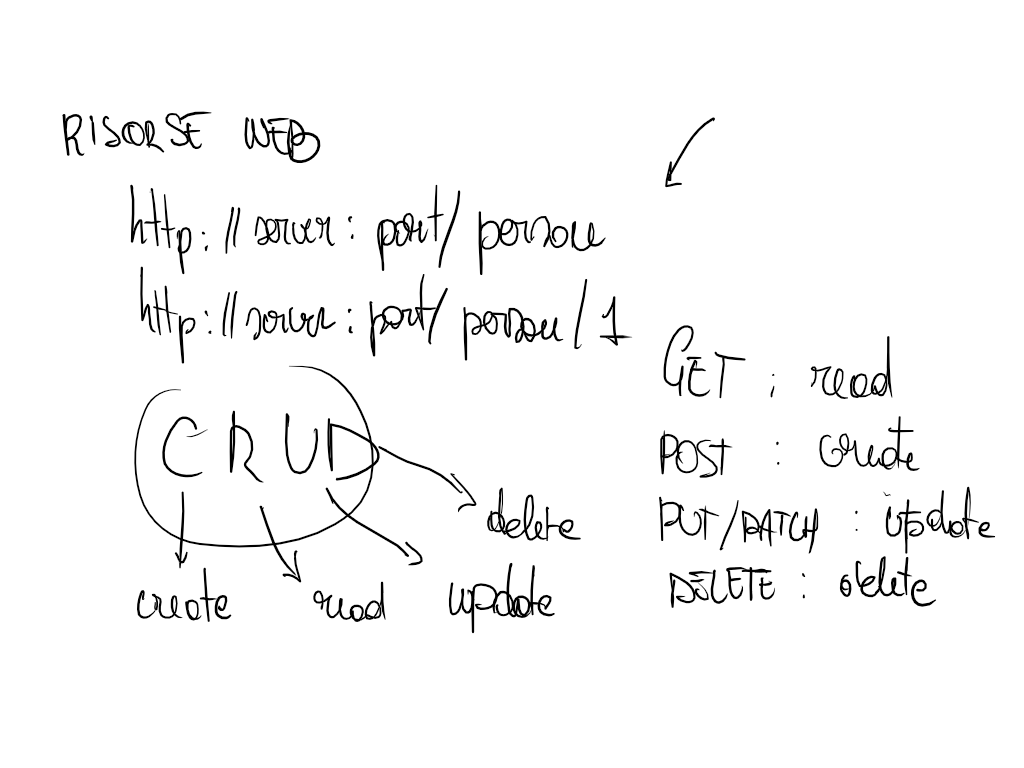 RISORSE WEB
http://server:port/persone
http://server:port/persone/1
CRUD
delete
create read update
GET : read
POST : create
PUT/PATCH : update
DELETE : delete